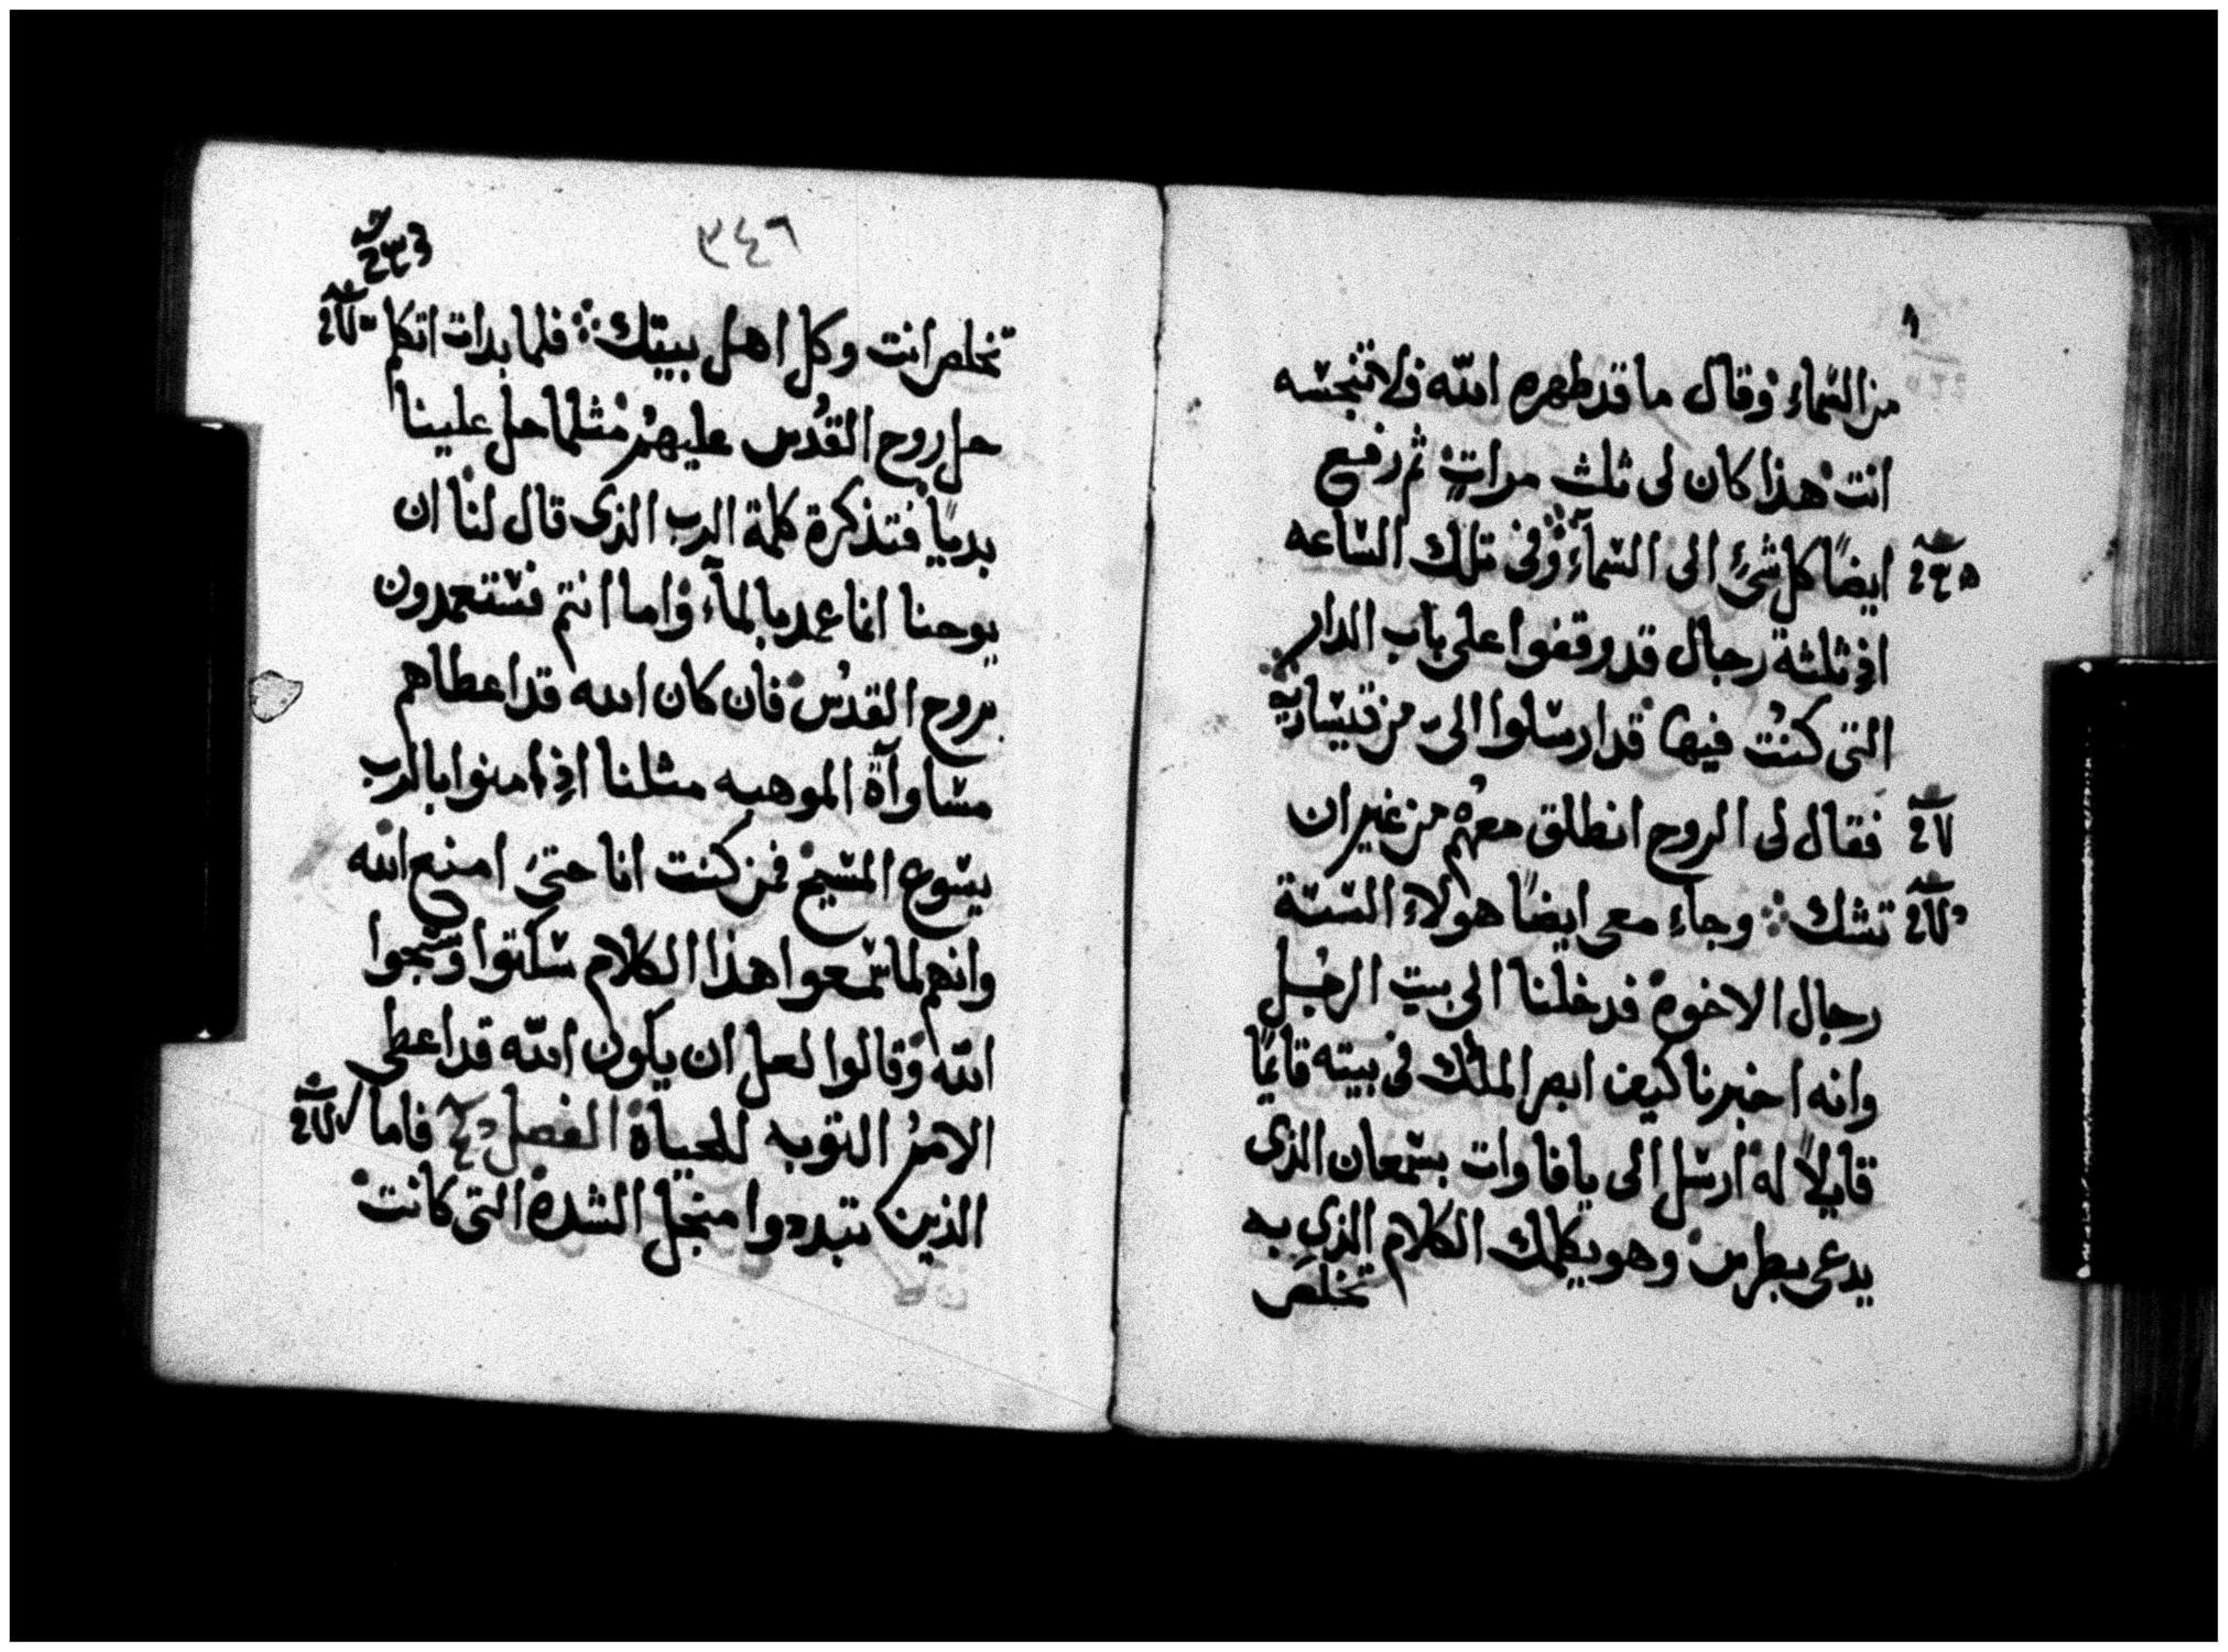 من السّماء وقال ما قد طهره الله فلا تنجسّه
انت هذا كان لى ثلث مراتٍ ثم رفع
ايضًا كل شئٍ الى السّمآء وفى تلك السّاعه
اذ ثلثة رجال قد وقفوا على باب الدار
التى كنتُ فيها قد ارسّلوا الىّ من قيسّاريه
فقال لى الروح انطلق معهُم من غير ان
تشك ⁘ وجاء معى ايضًا هولاء السّتة
رجال الاخوة فدخلنا الى بيت الرجُل
وانه اخبرنا كيف ابصر الملك فى بيته قايمًا
قايلاً له ارسّل الى يافا وات بسّمعان الذى
يدعى بطرس وهو يكلمك الكلام الذى به
تخلص
٣٤٦
تخلص انت وكل اهل بيتك ⁘ فلما بدات اتكلم
حل روح القُدس عليهمُ مثلما حل علينا
بديًا فتذكرة كلمة الرب الذى قال لنا ان
يوحنا انما عمد بالمآء واما انتم فسّتعمدون
بروح القدسُ فان كان الله قد اعطاهم
مسّاوآة الموهبه مثلنا اذ امنوا بالرب
يسّوع المسّيح فمن كنت انا حتىَ امنع الله
وانهم لما سّمعوا هذا الكلام سّكتوا وسّبحوا
الله وقالوا لعل ان يكون الله قد اعطى
الاممُ التوبه للحياة الفصل فاما
الذين تبددوا منجل الشدة التى كانت